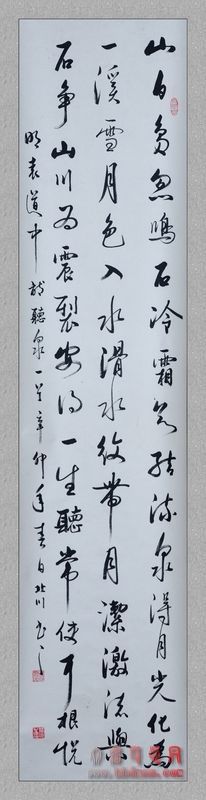 山白鳥忽鳴石冷霜欲結流泉得月光化為
一溪雪月色入水滑水紋帶月潔激與
石爭山川為震裂安得一生聽常使耳根悅
明袁道中詩聽泉一首辛卯年春日北川書之